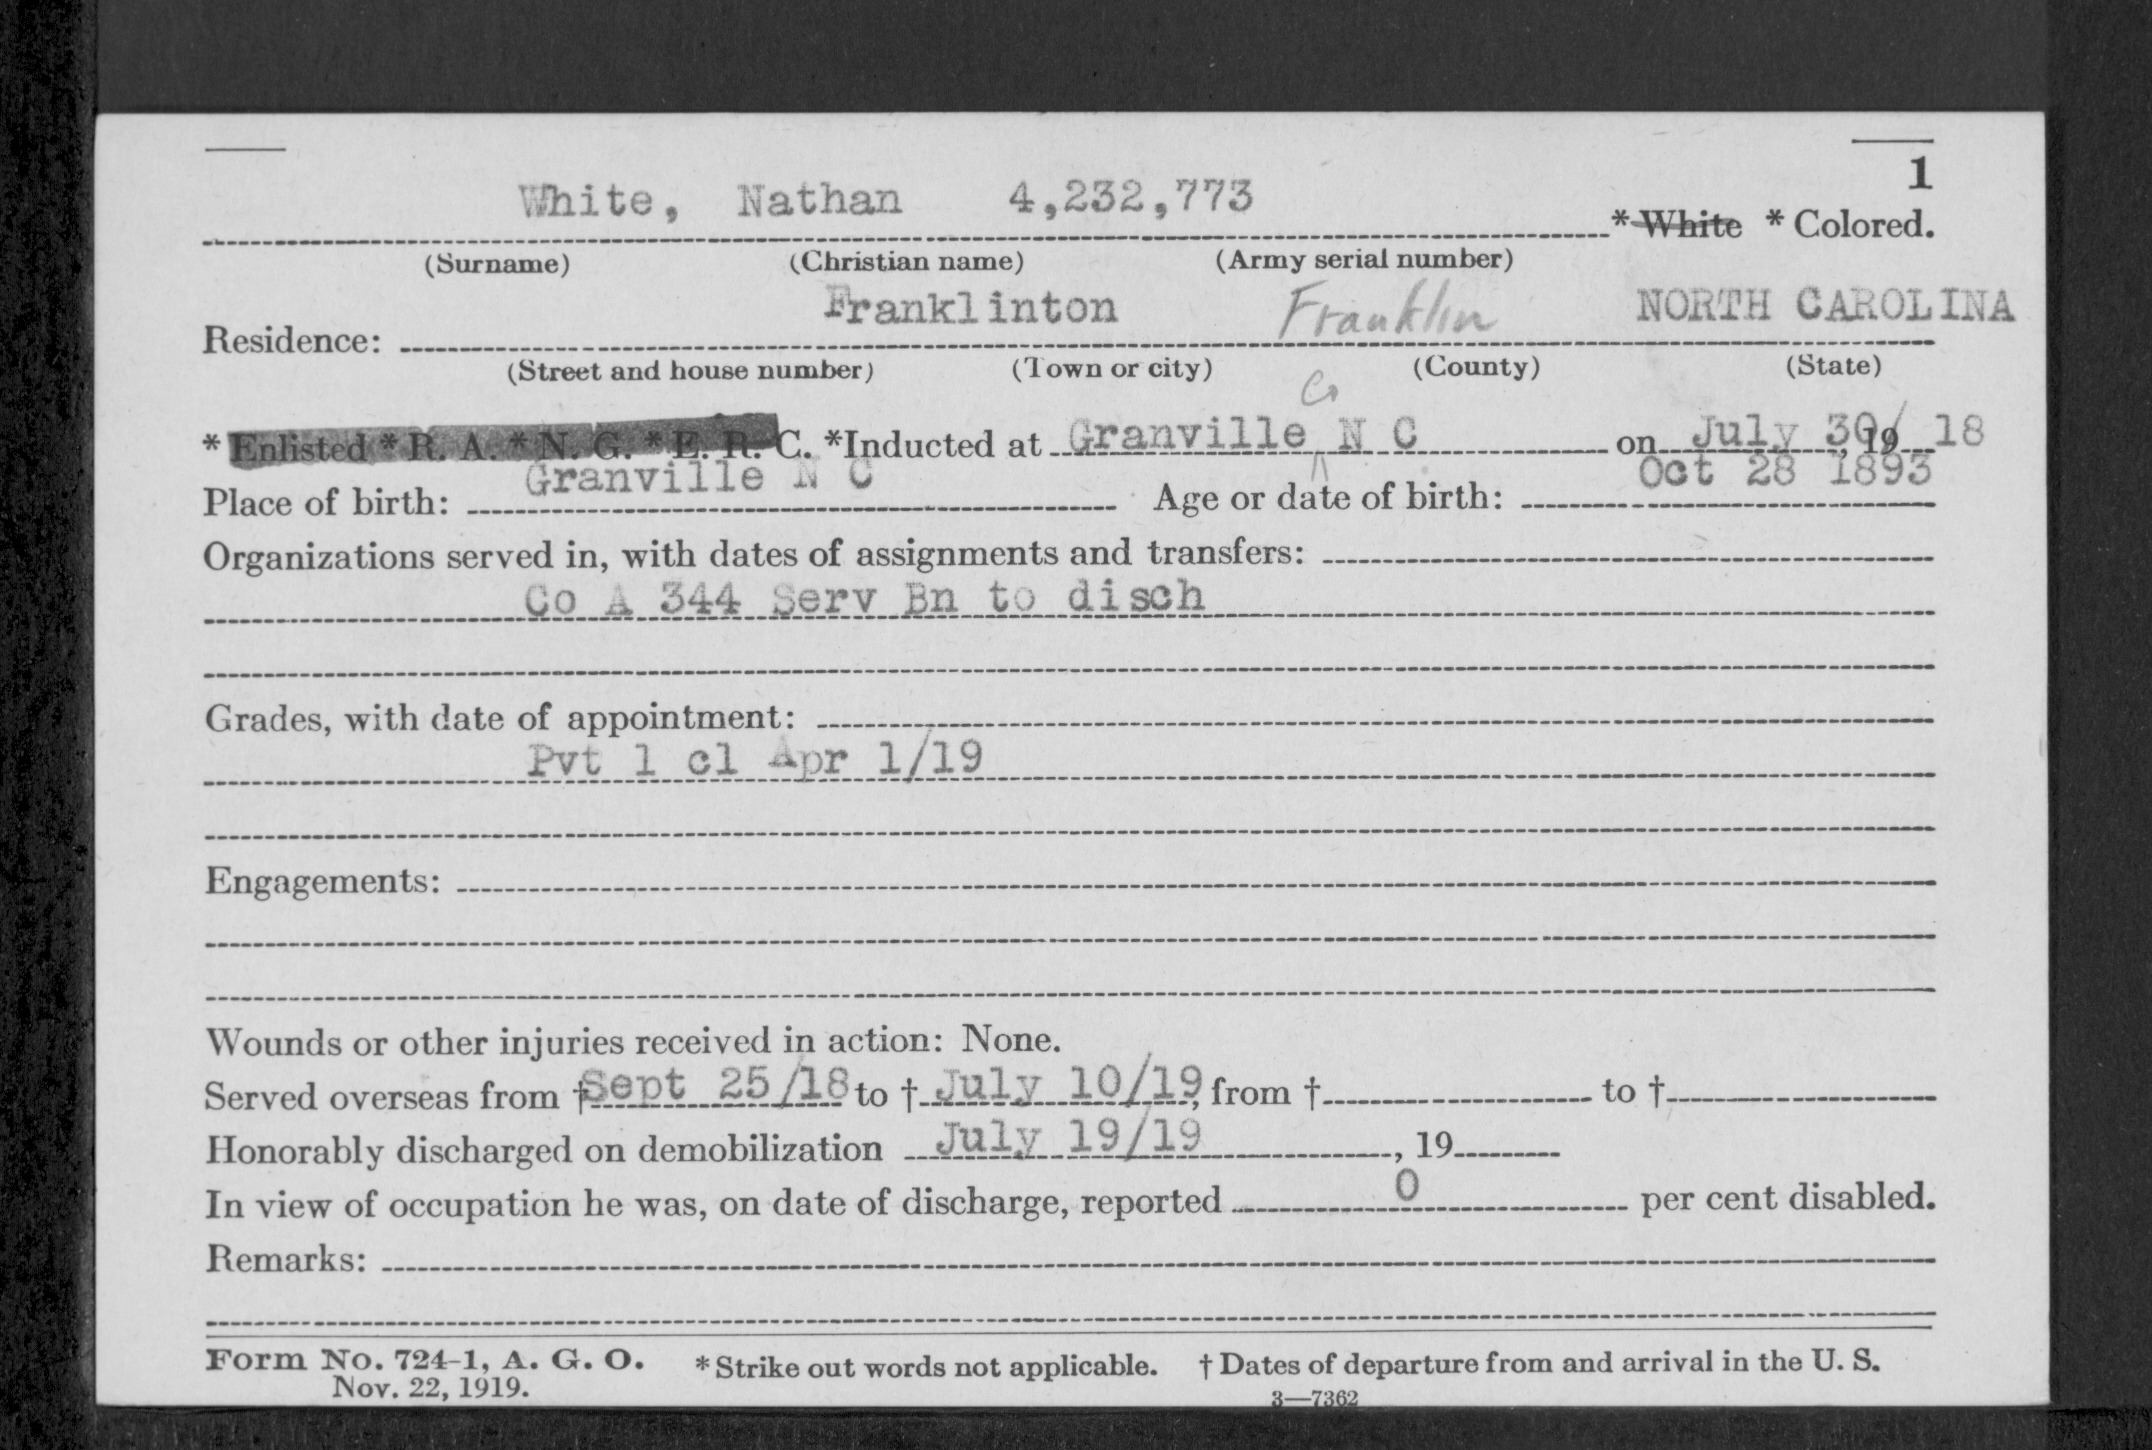 1
White, Nathan 4,232,773 * White * Colored.
(Surname) (Christian name) (Army serial number)
Residence: Franklinton Franklin NORTH CAROLINA
(Street and house number) (Town or city) (County) (State)
Co
* Enlisted * R. A. * N. G. * E. R. C. *Inducted at Granville N C on July 30/, 19 18
Place of birth: Granville N C Age or date of birth: Oct 28 1893
Organizations served in, with dates of assignments and transfers:
Co A 344 Serv Bn to disch
Grades, with date of appointment:
Pvt 1 cl Apr 1/19
Engagements:
Wounds or other injuries received in action: None.
Served overseas from † Sept 25/18 to † July 10/19, from † to †
Honorably discharged on demobilization July 19/19, 19
In view of occupation he was, on date of discharge, reported 0 per cent disabled.
Remarks:
Form No. 724-1, A. G. O. * Strike out words not applicable. † Dates of departure from and arrival in the U. S.
Nov. 22, 1919. 3—7362